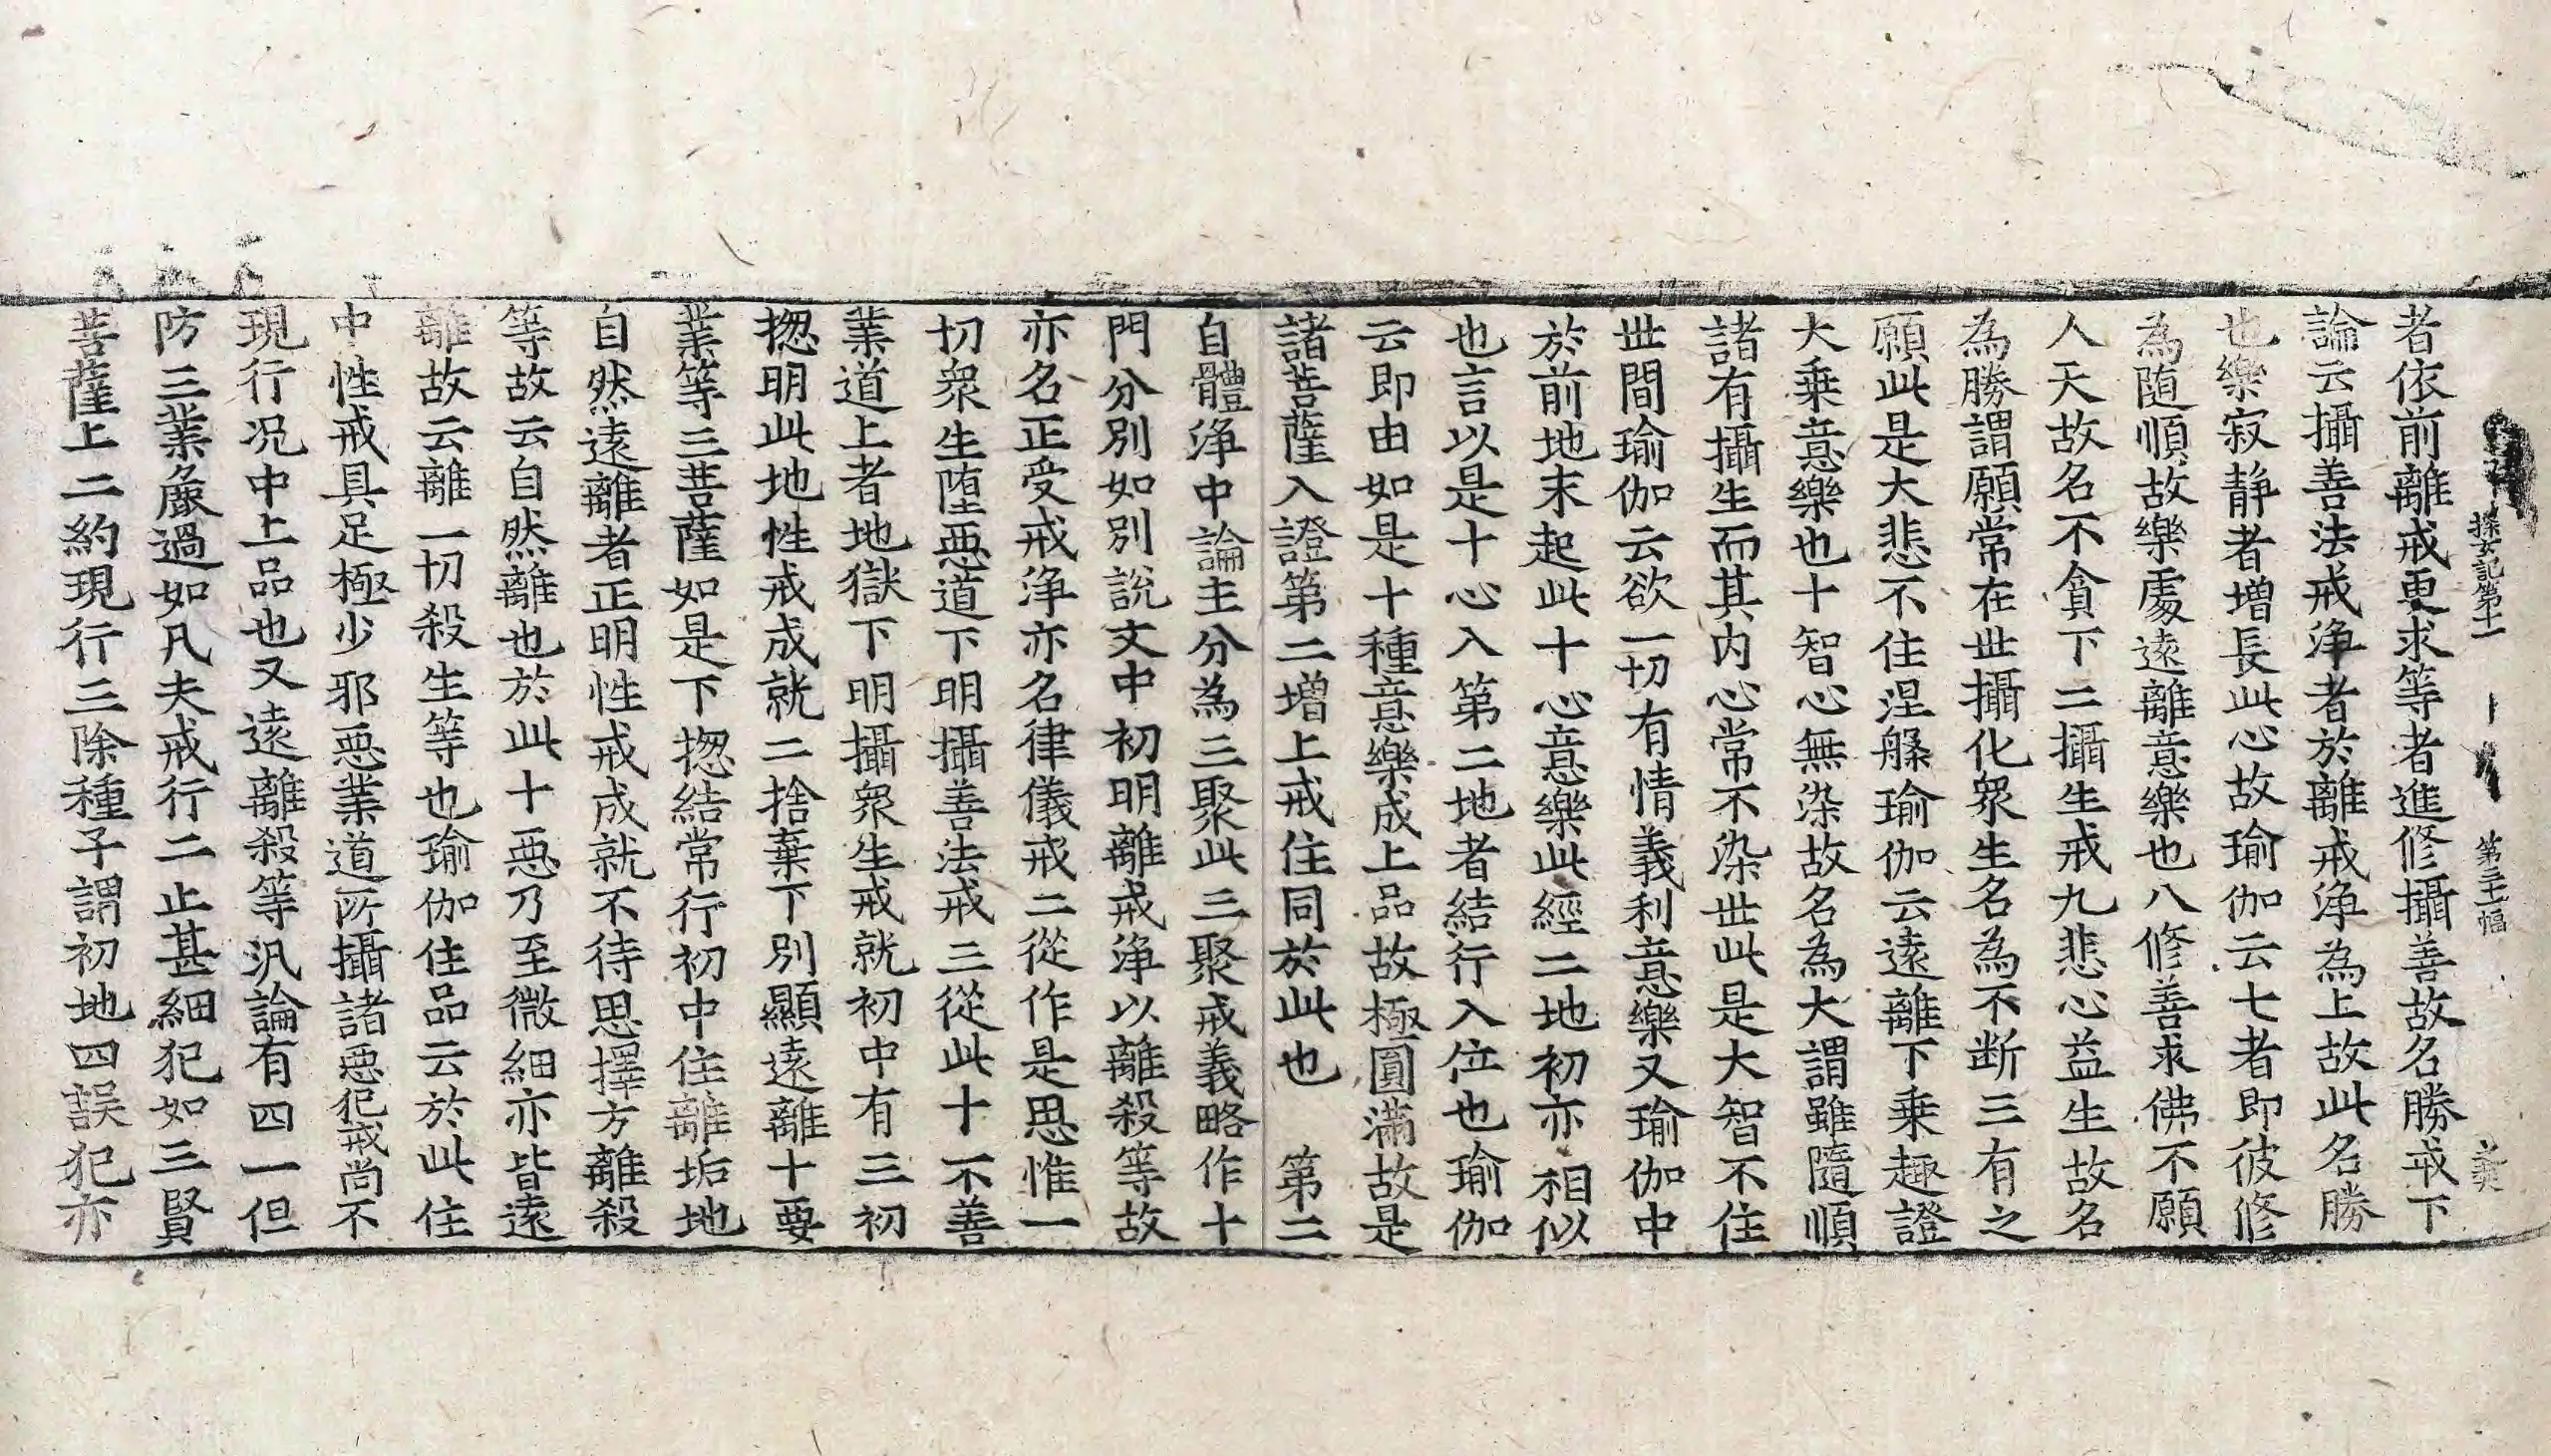 探玄記第十一　第三十一幅
者依前離戒更求等者進修攝善故名勝戒下
論云攝善法戒淨者於離戒淨為上故此名勝
也樂寂靜者增長此心故瑜伽云七者即彼修
為隨順故樂處遠離意樂也八修善求佛不願
人天故名不貪下二攝生戒九悲心益生故名
為勝謂願常在世攝化眾生名為不断三有之
願此是大悲不住涅槃瑜伽云遠離下乗趣證
大乗意樂也十智心無染故名為大謂雖隨順
諸有攝生而其内心常不染世此是大智不住
世間瑜伽云欲一切有情義利意樂又瑜伽中
於前地末起此十心意樂此經二地初亦相似
也言以是十心入第二地者結行入位也瑜伽
云即由如是十種意樂成上品故極圓滿故是
諸菩薩入證第二增上戒住同於此也　第二
自體淨中論主分為三聚此三聚戒義略作十
門分別如別說文中初明離戒淨以離殺等故
亦名正受戒淨亦名律儀戒二從作是思惟一
切衆生墮惡道下明攝善法戒三從此十不善
業道上者地獄下明攝衆生戒就初中有三初
揔明此地性戒成就二捨棄下別顯遠離十要
業等三菩薩如是下揔結常行初中住離垢地
自然遠離者正明性戒成就不待思擇方離殺
等故云自然離也於此十惡乃至微細亦皆遠
離故云離一切殺生等也瑜伽住品云於此住
中性戒具足極少邪惡業道所攝諸惡犯戒尚不
現行况中上品也又遠離殺等汎論有四一但
防三業麁過如凡夫戒行二止甚細犯如三賢
菩薩上二約現行三除種子謂初地四誤犯亦